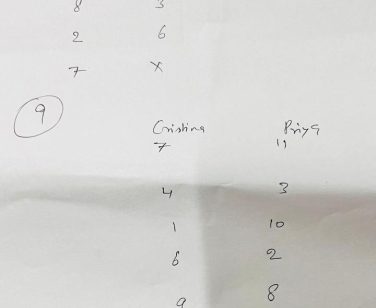 8 3
2 6
7 X
9
Cristina Priya
7 11
4 3
1 10
6 2
9 8